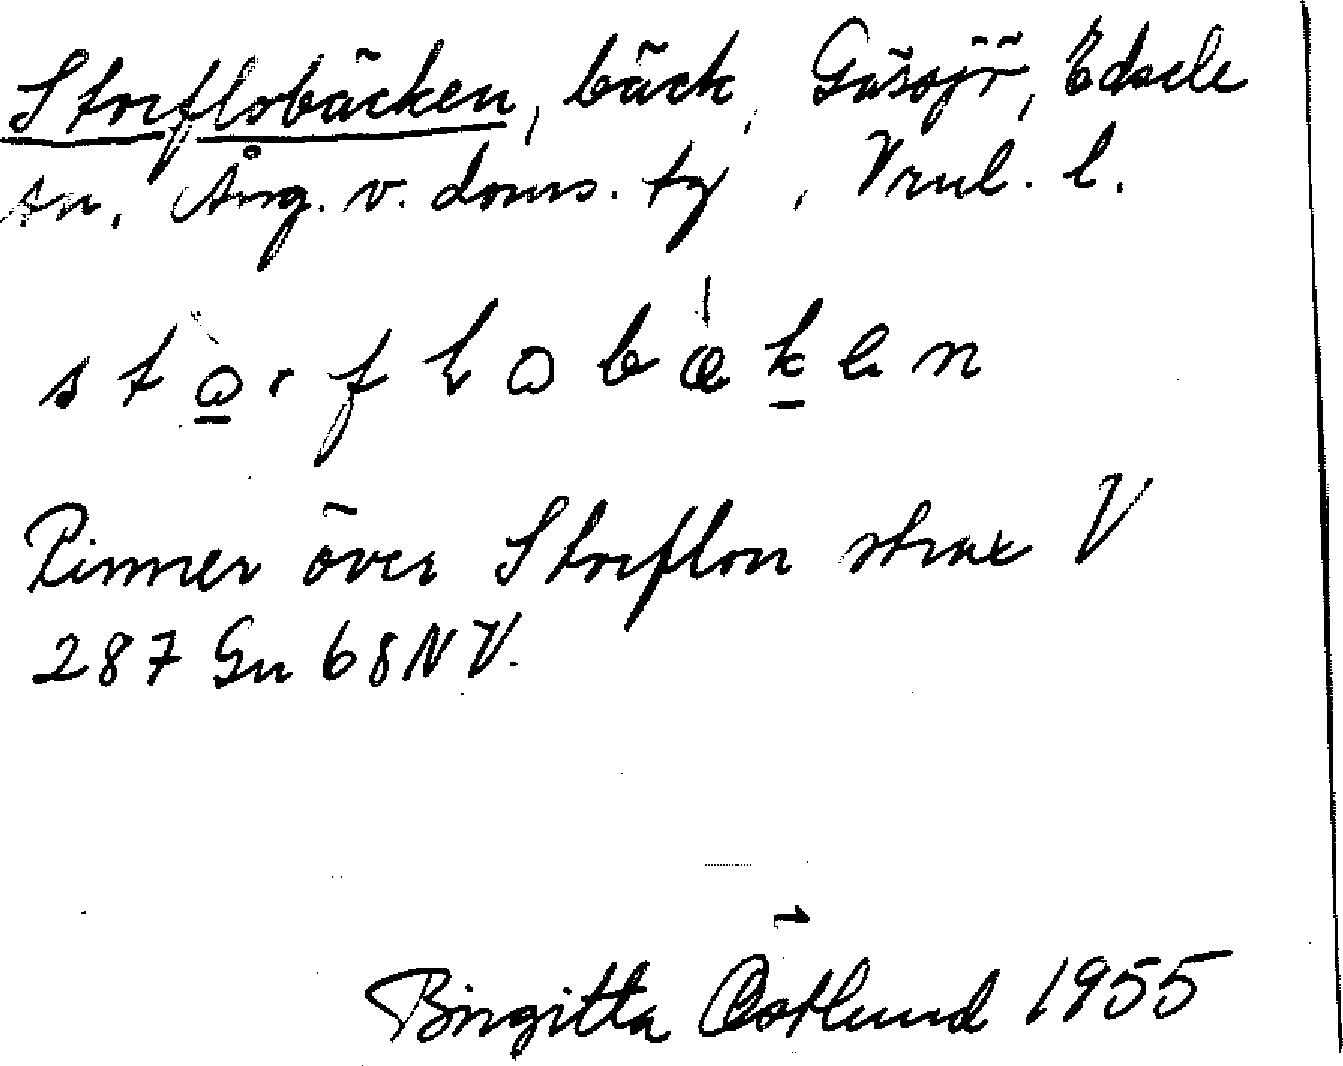 Storflobäcken, bäck, Gåssjö, Edsele
sn. Ång. v. doms. tg, Vrul. l.
storflobækən
Rinner över Storflon strax V
287 Gn 68 NV.
Birgitta Östlund 1955